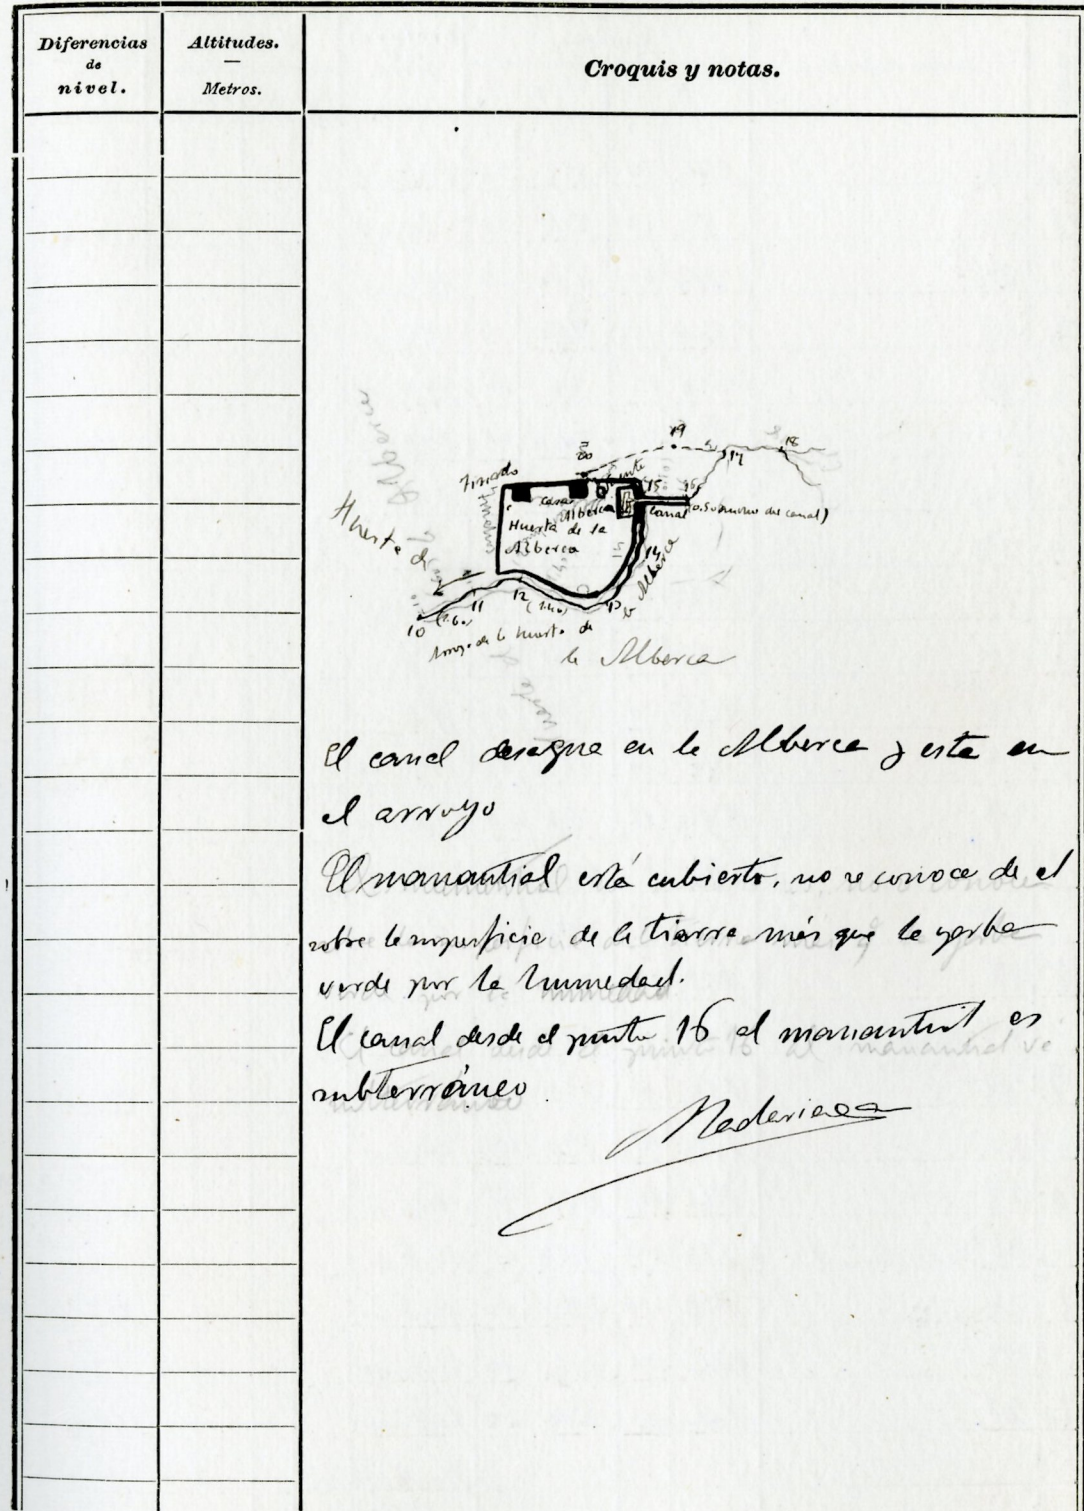 Diferencias
de
nivel.
Altitudes.
Metros.
Croquis y notas.
19
18
17
20
fuente
15
16
casa
Alberca
canal (0.50 ancho del canal)
Huerta de la
Alberca
14
Huerta de
12
13
11
10
(1.60)
Arroyo de la Huerta de
la Alberca
El canal desagua en la Alberca y esta en
el arroyo
El manantial está cubierto, no se conoce de el
sobre la superficie de la tierra más que la yerba
verde por la humedad.
El canal desde el punto 16 al manantial es
subterráneo.
Madariaga